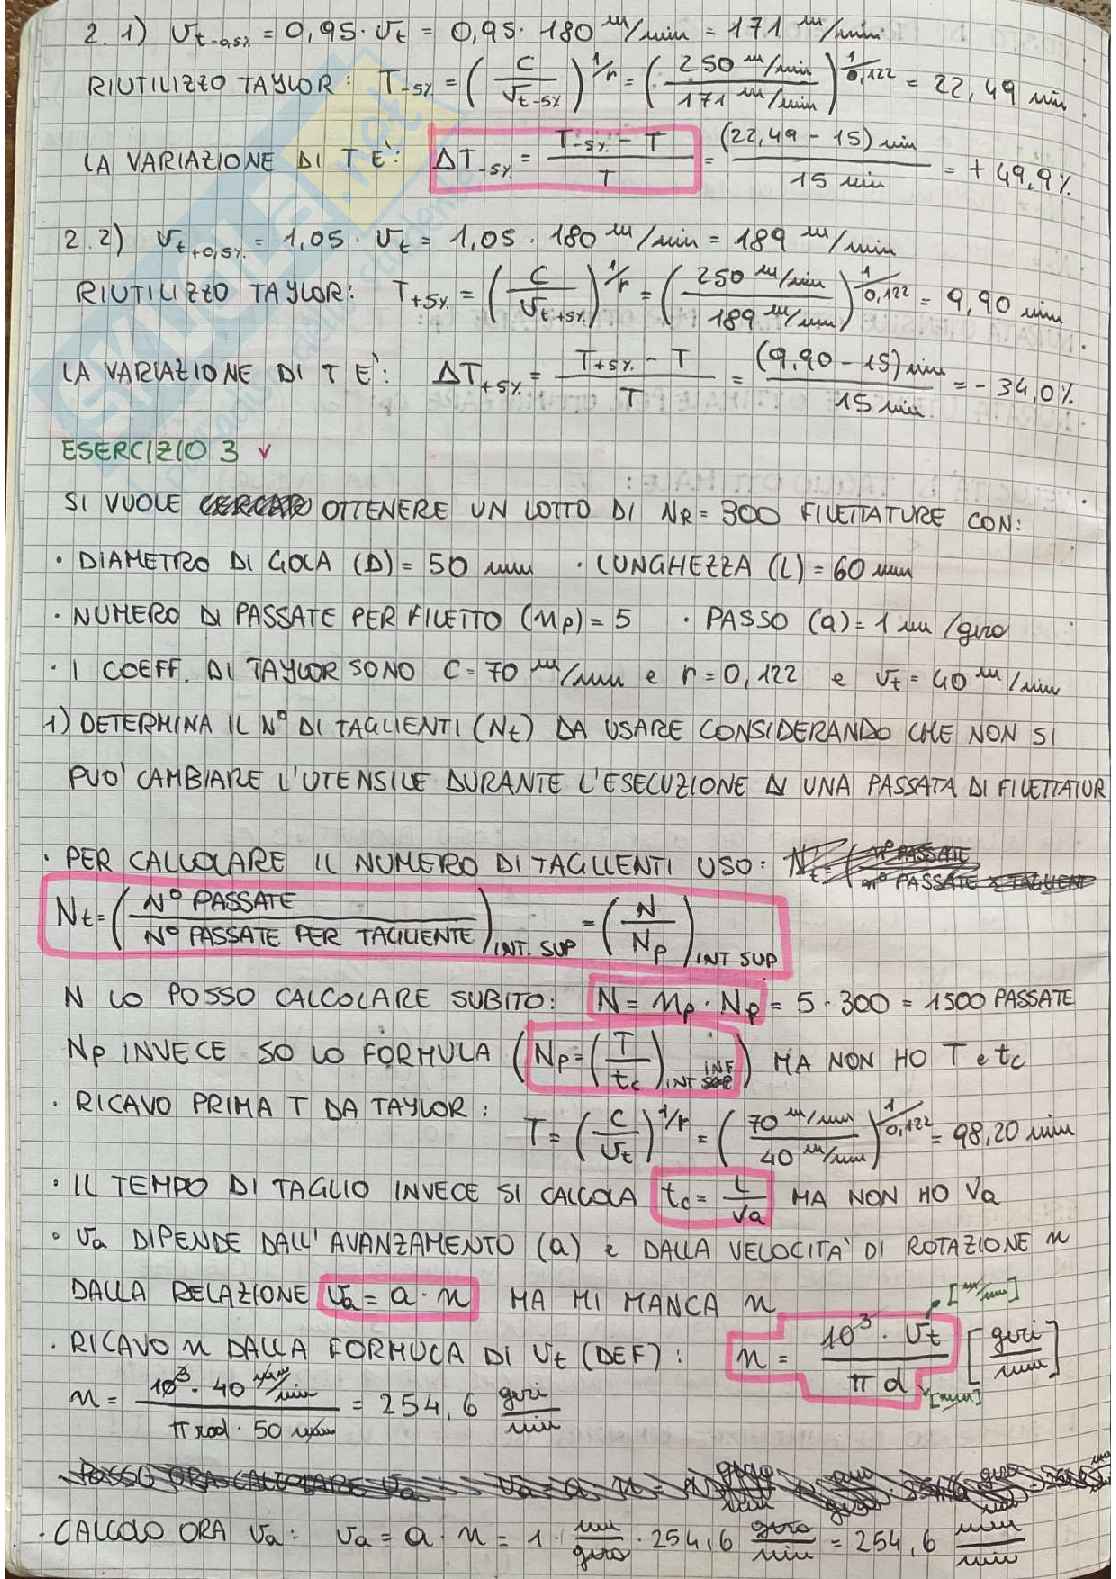 2.1) Vt-0,5% = 0,95 · Vt = 0,95 · 180 m/min = 171 m/min
RIUTILIZZO TAYLOR: T-5% = (C / Vt-5%)^1/r = (250 m/min / 171 m/min)^1/0,122 = 22,49 min
LA VARIAZIONE DI T E': ΔT-5% = (T-5% - T) / T = (22,49 - 15) min / 15 min = + 49,9%
2.2) Vt+0,5% = 1,05 · Vt = 1,05 · 180 m/min = 189 m/min
RIUTILIZZO TAYLOR: T+5% = (C / Vt+5%)^1/r = (250 m/min / 189 m/min)^1/0,122 = 9,90 min
LA VARIAZIONE DI T E': ΔT+5% = (T+5% - T) / T = (9,90 - 15) min / 15 min = - 34,0%
ESERCIZIO 3 v
SI VUOLE OTTENERE UN LOTTO DI NR = 300 FILETTATURE CON:
· DIAMETRO DI GOLA (D) = 50 mm · LUNGHEZZA (L) = 60 mm
· NUMERO DI PASSATE PER FILETTO (mp) = 5 · PASSO (a) = 1 mm/giro
· I COEFF. DI TAYLOR SONO C = 70 m/min e r = 0,122 e Vt = 40 m/min
1) DETERMINA IL N° DI TAGLIENTI (Nt) DA USARE CONSIDERANDO CHE NON SI
PUO' CAMBIARE L'UTENSILE DURANTE L'ESECUZIONE DI UNA PASSATA DI FILETTATUR
· PER CALCOLARE IL NUMERO DI TAGLIENTI USO: Nt = ( N° PASSATE / N° PASSATE X TAGLIENT
Nt = (N° PASSATE / N° PASSATE PER TAGLIENTE) INT. SUP = (N / Np) INT SUP
N LO POSSO CALCOLARE SUBITO: N = mp · Np = 5 · 300 = 1500 PASSATE
Np INVECE SO LO FORMULA (Np = (T / tc) INT INF) MA NON HO T e tc
· RICAVO PRIMA T DA TAYLOR: T = (C / Vt)^1/r = (70 m/min / 40 m/min)^1/0,122 = 98,20 min
· IL TEMPO DI TAGLIO INVECE SI CALCOLA tc = L / Va MA NON HO Va
· Va DIPENDE DALL'AVANZAMENTO (a) e DALLA VELOCITA' DI ROTAZIONE n
DALLA RELAZIONE Va = a · n MA MI MANCA n
· RICAVO n DALLA FORMULA DI Vt (DEF): n = 10³ · Vt [m/min] / π d [mm] [giri / min]
n = 10³ · 40 m/min / π rad · 50 mm = 254,6 giri / min
POSSO ORA CALCOLARE Va Va = a · n =
· CALCOLO ORA Va: Va = a · n = 1 · mm / giro · 254,6 giro / min = 254,6 mm / min